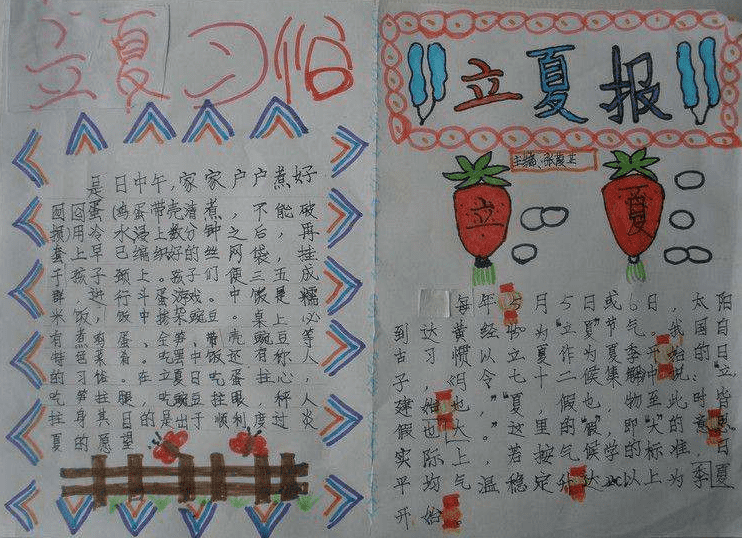 立夏习俗
是日中午,家家户户煮好
囫囵蛋(鸡蛋带壳清煮,不能破
损)用冷水浸上数分钟之后,再
套上早已编织好的丝网袋,挂
于孩子颈上。孩子们便三五成
群,进行斗蛋游戏。中饭是糯
米饭,饭中掺菜豌豆。桌上必
有煮鸡蛋、全笋、带壳豌豆等
特色菜肴。吃中饭还有称人
的习俗。在立夏吃蛋拄心,
吃笋拄腿,吃豌豆拄眼,秤
拄身其目的是出于顺利度过炎
夏的愿望
立夏报
主编:张
立
夏
每年5月5日或6日,太阳
到达黄经45为"立夏"节气。我国自
古习惯以立夏作为夏季开始的日
子,《月令七十二候集解》中说:"立
建始也,夏假也,物至此时皆
假也大。"这里的"假"即"大"的意思
实际上,若按气候学的标准,日
平均气温稳定升达22以上为夏季
开始